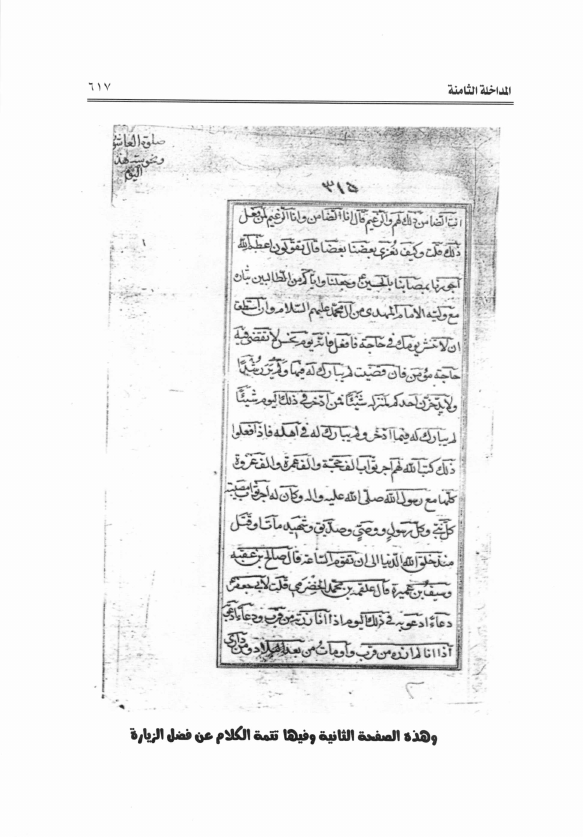 المداخلة الثامنة
٦١٧
صلوة العاشو
اليوم
٣١٥
انت الضامن ذلك لهم والزعيم قال انا الضامن وانا الزعيم لمن فعل
ذلك قلت وكيف تعزى بعضنا بعضا قال تقولون اعظم الله
اجورنا بمصابنا بالحسين وجعلنا واياكم من الطالبين بثاره
مع وليه الامام المهدى من آل محمد عليهم السلام وان استطعت
ان لا تنتشر يومك فى حاجة فافعل فانه يوم نحس لا تقضى فيه
حاجة مؤمن فان قضيت لم يبارك له فيها ولم ير رشدا
ولا يدخرن احدكم لمنزله شيئا فمن ادخر فى ذلك اليوم شيئا
لم يبارك له فيما ادخر ولم يبارك له فى اهله فاذا فعلوا
ذلك كتب الله لهم اجر ثواب الف حجة والف عمرة والف غزوة
كلها مع رسول الله صلى الله عليه واله وكان له اجر وثواب مصيبة
كل نبى وكل رسول ووصى وصديق وشهيد مات او قتل
منذ خلق الله الدنيا الى ان تقوم الساعة قال صالح بن عقبه
وسيف بن عميرة قال علقمه بن محمد الحضرمى قلت لابى جعفر
دعاء ادعو به فى ذلك اليوم اذا انا زرته من قرب ودعاء ادعو
اذا انا لم ازره من قرب واومأت من بعد
وهذه الصفحة الثانية وفيها تتمة الكلام عن فضل الزيارة